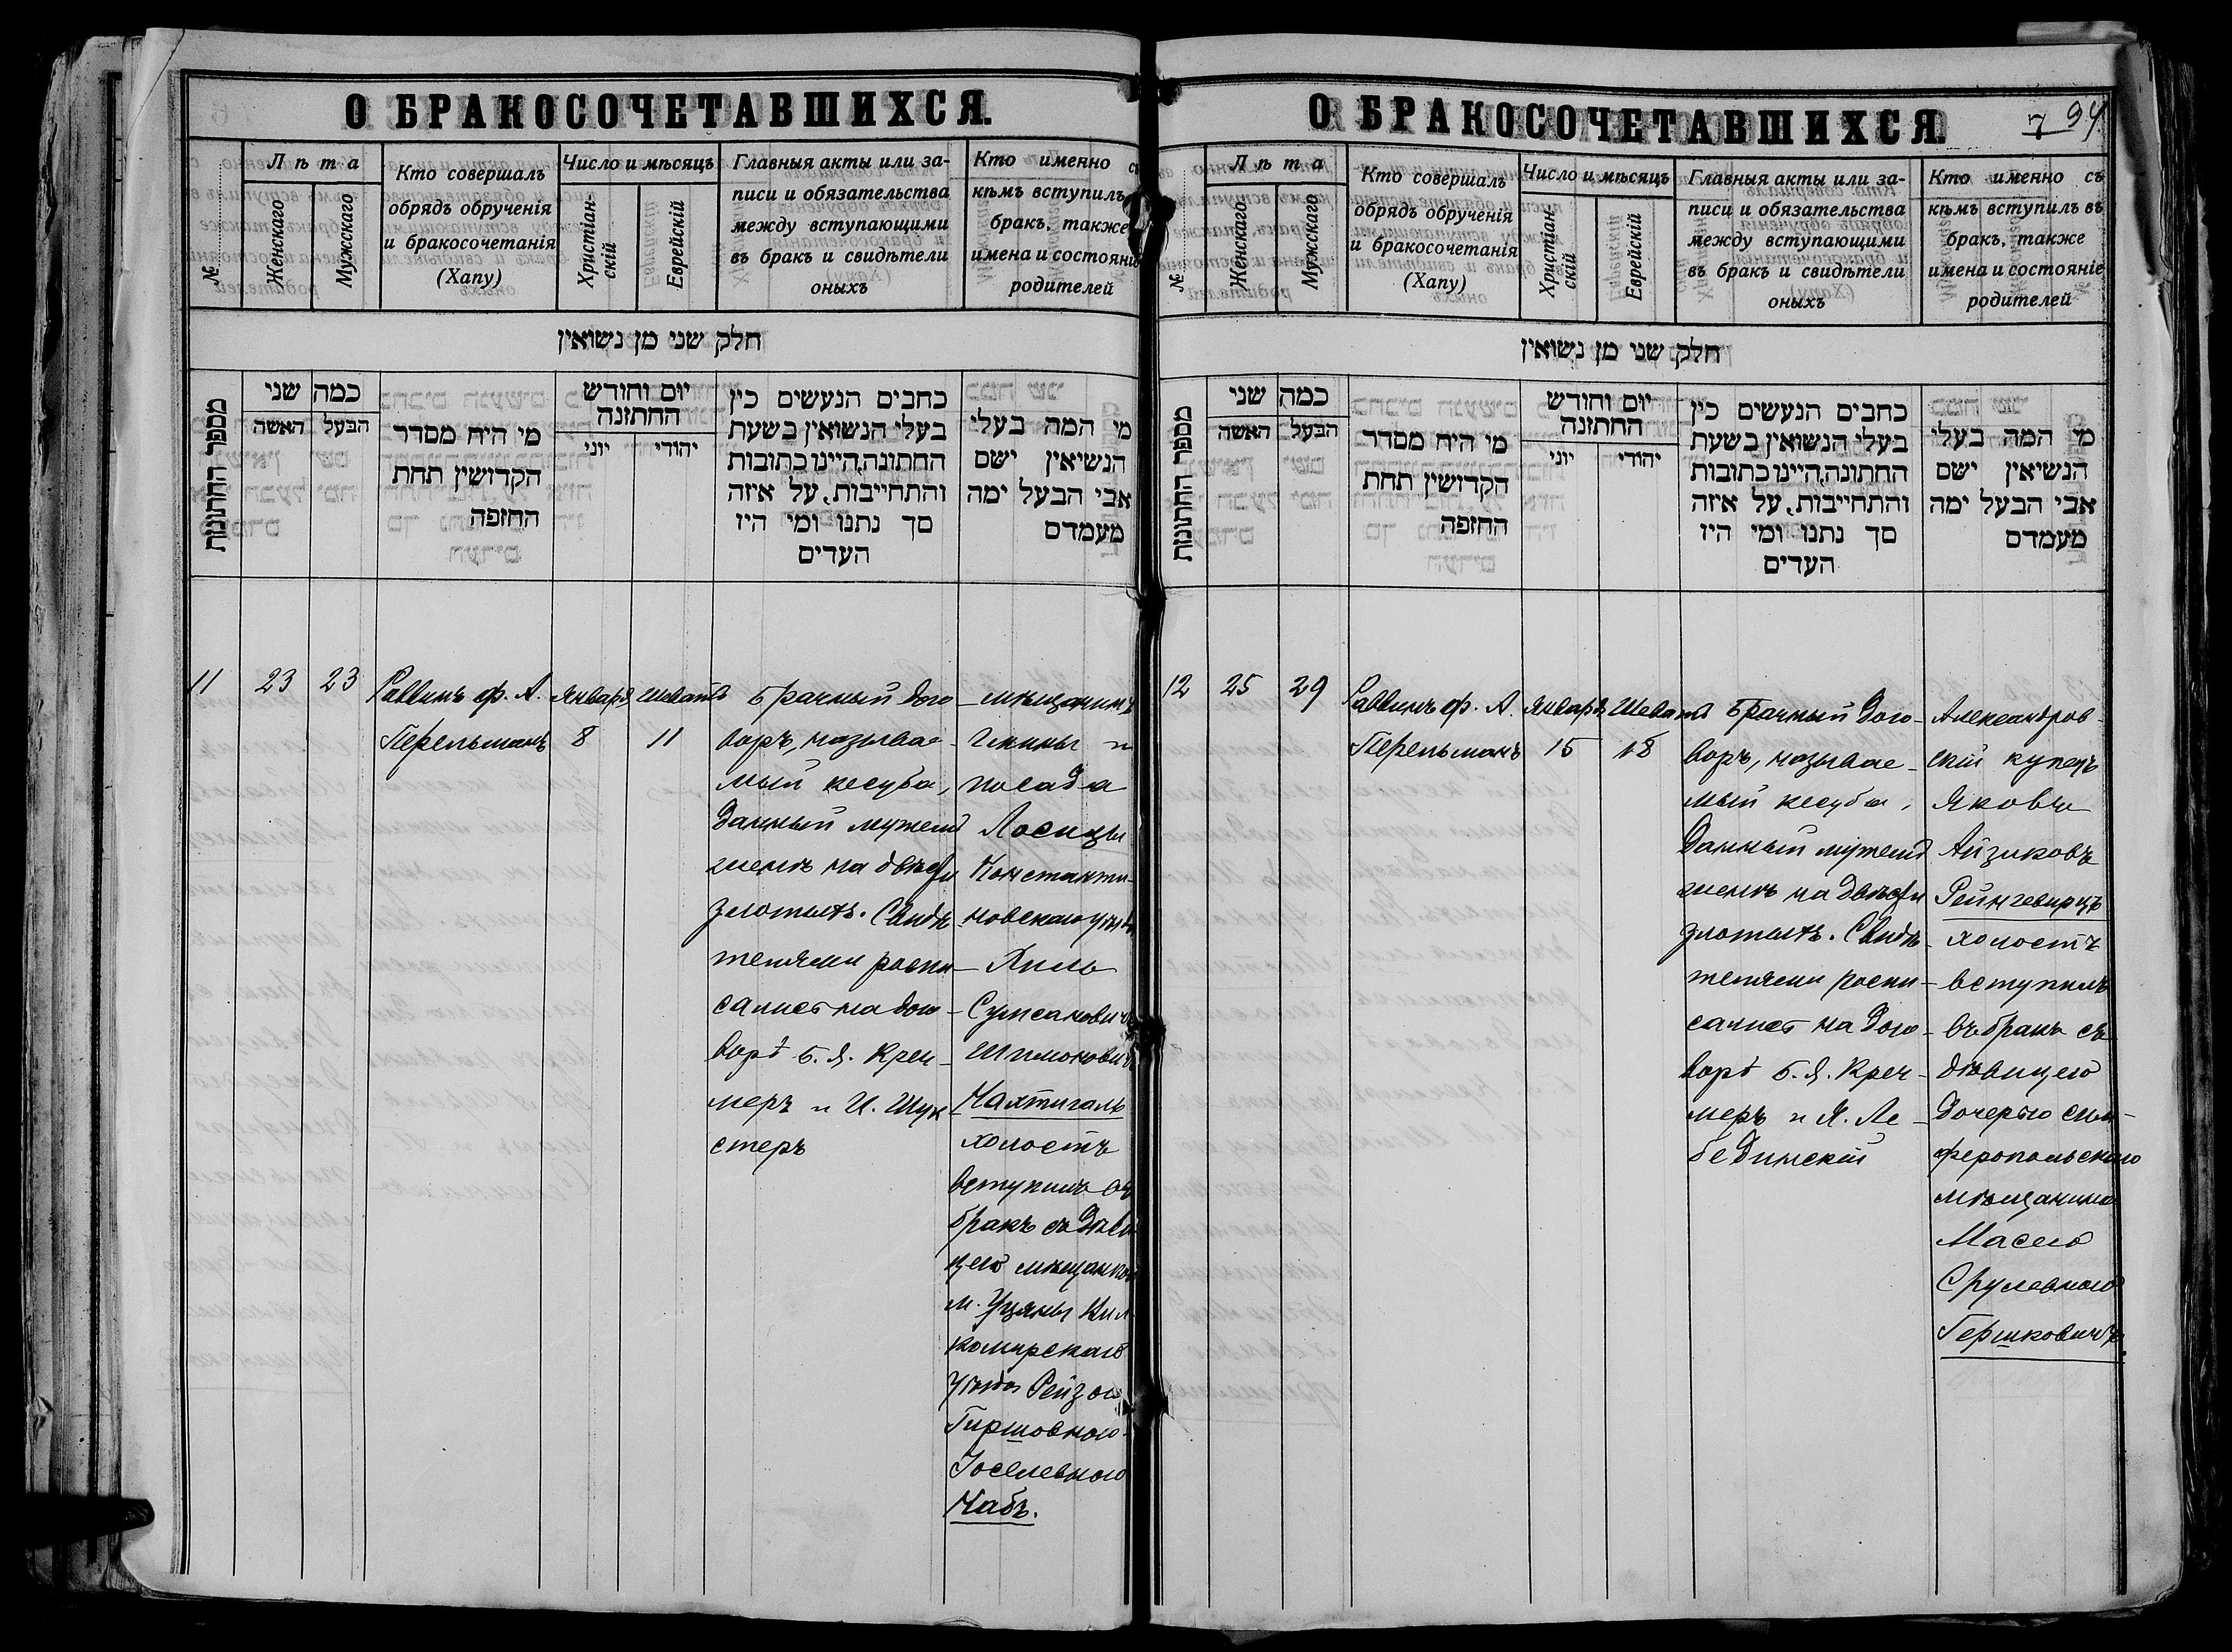 О БРАКОСОЧЕТАВШИХСЯ.
№
Лѣта
Женскаго
Мужскаго
Кто совершалъ
обрядъ обрученія
и бракосочетанія
(Хапу)
Число и мѣсяцъ
Христіан-
скій
Еврейскій
Главныя акты или за-
писи и обязательства
между вступающими
въ бракъ и свидѣтели
оныхъ
Кто именно съ
кѣмъ вступилъ
бракъ, также
имена и состояніе
родителей
חלק שני מן נשואין
מספר החתונות
כמה שני
הבעל האשה
מי היח מסדר
הקדושין תחת
החופה
יום וחודש
החתונה
יהודי יוני
כתבים הנעשים כין
בעלי הנשואין בשעת
החתונה, היינו כתובות
והתחייבות, על איזה
סך נתנו ומי היו
העדים
מי המה בעלי
הנשיאין ישם
אבי הבעל ימה
מעמדם
11
23
23
Раввинъ ф. А.
Перельманъ
Января
8
Шеватъ
11
Брачный дого-
воръ, называе-
мый кесуба,
данный мужемъ
женѣ на двѣсти
злотыхъ. Свидѣ-
телями распи-
сались на дого-
ворѣ Б. Я. Креч-
меръ и И. Шук
стеръ
мѣщанинъ
гмины и
посада
Лосицы
Константи-
новскаго уѣзда
Хиль
Шимоновичъ
Нахтигаль
холостъ
вступилъ въ
бракъ съ дѣви-
цею мѣщанкою
м. Уцяны Вил-
комирскаго
уѣзда Рейзою
Гиршовною-
Іоселевною
Чабъ.
О БРАКОСОЧЕТАВШИХСЯ.
7 94
№
Лѣта
Женскаго
Мужскаго
Кто совершалъ
обрядъ обрученія
и бракосочетанія
(Хапу)
Число и мѣсяцъ
Христіан-
скій
Еврейскій
Главныя акты или за-
писи и обязательства
между вступающими
въ бракъ и свидѣтели
оныхъ
Кто именно съ
кѣмъ вступилъ въ
бракъ, также
имена и состояніе
родителей
חלק שני מן נשואין
מספר החתונות
כמה שני
הבעל האשה
מי היח מסדר
הקדושין תחת
החופה
יום וחודש
החתונה
יהודי יוני
כתבים הנעשים כין
בעלי הנשואין בשעת
החתונה, היינו כתובות
והתחייבות, על איזה
סך נתנו ומי היו
העדים
מי המה בעלי
הנשיאין ישם
אבי הבעל ימה
מעמדם
12
25
29
Раввинъ ф. А.
Перельманъ
Января
15
Шеватъ
18
Брачный дого-
воръ, называе-
мый кесуба,
данный мужемъ
женѣ на двѣсти
злотыхъ. Свидѣ-
телями распи-
сались на дого-
ворѣ Б. Я. Креч-
меръ и Я. Ле-
бединскій
Александров-
скій купецъ
Яковъ
Айзиковъ
Рейнгевирцъ
холостъ
вступилъ
въ бракъ съ
дѣвицею
дочерью сим-
феропольскаго
мѣщанина
Масею
Срулевною
Гершковичъ.